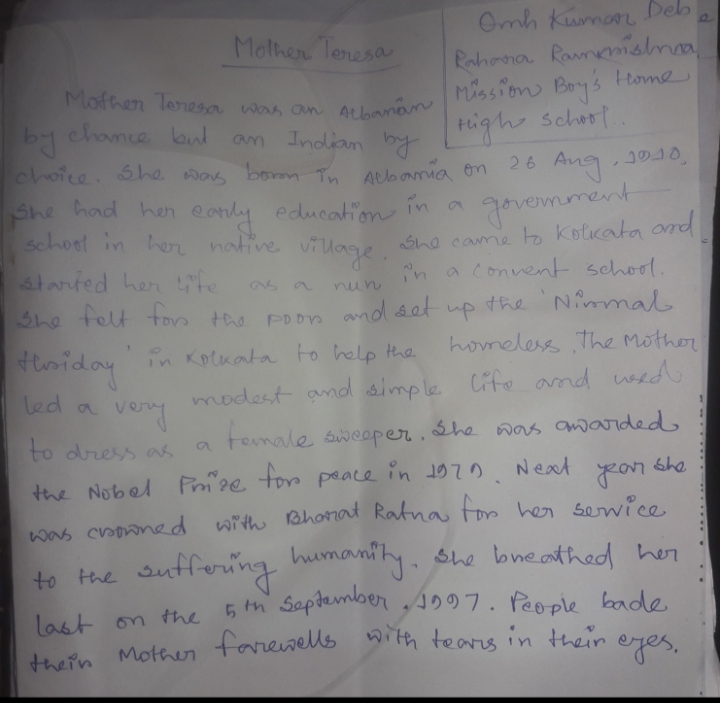 Mother Teresa
Omh Kumar Deb
Rahara Ramkrishna
Mission Boy's Home
High school..
Mother Teresa was an Albanian
by chance but an Indian by
choice. She was born in Albania on 26 Aug, 1910.
She had her early education in a government
school in her native village. She came to Kolkata and
started her life as a nun in a convent school.
She felt for the poor and set up the 'Nirmal
Hriday' in Kolkata to help the homeless. The Mother
led a very modest and simple life and used
to dress as a female sweeper. She was awarded
the Nobel Prize for peace in 1979. Next year she
was crowned with Bharat Ratna for her service
to the suffering humanity. She breathed her
last on the 5th September, 1997. People bade
their Mother farewells with tears in their eyes.